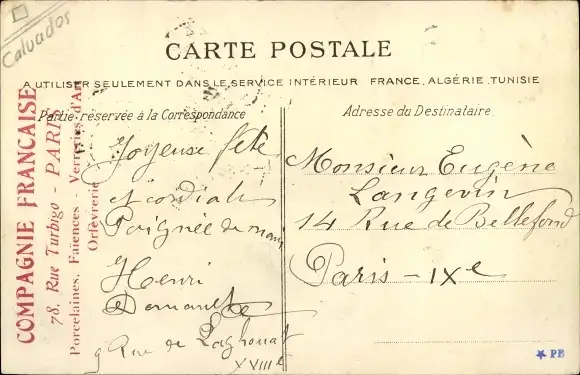 Calvados
CARTE POSTALE
A UTILISER SEULEMENT DANS LE SERVICE INTÉRIEUR FRANCE, ALGÉRIE, TUNISIE
Partie réservée à la Correspondance
Adresse du Destinataire.
COMPAGNIE FRANÇAISE
78, Rue Turbigo - PARIS
Porcelaines, Faïences - Verreries d'Art
Orfèvrerie
Joyeuse fête
et cordiale
Poignée de main
Henri
9 Rue de Laghouat
XVIIIe
Monsieur Eugène
Langevin
14 Rue de Bellefond
Paris - IXe
PB